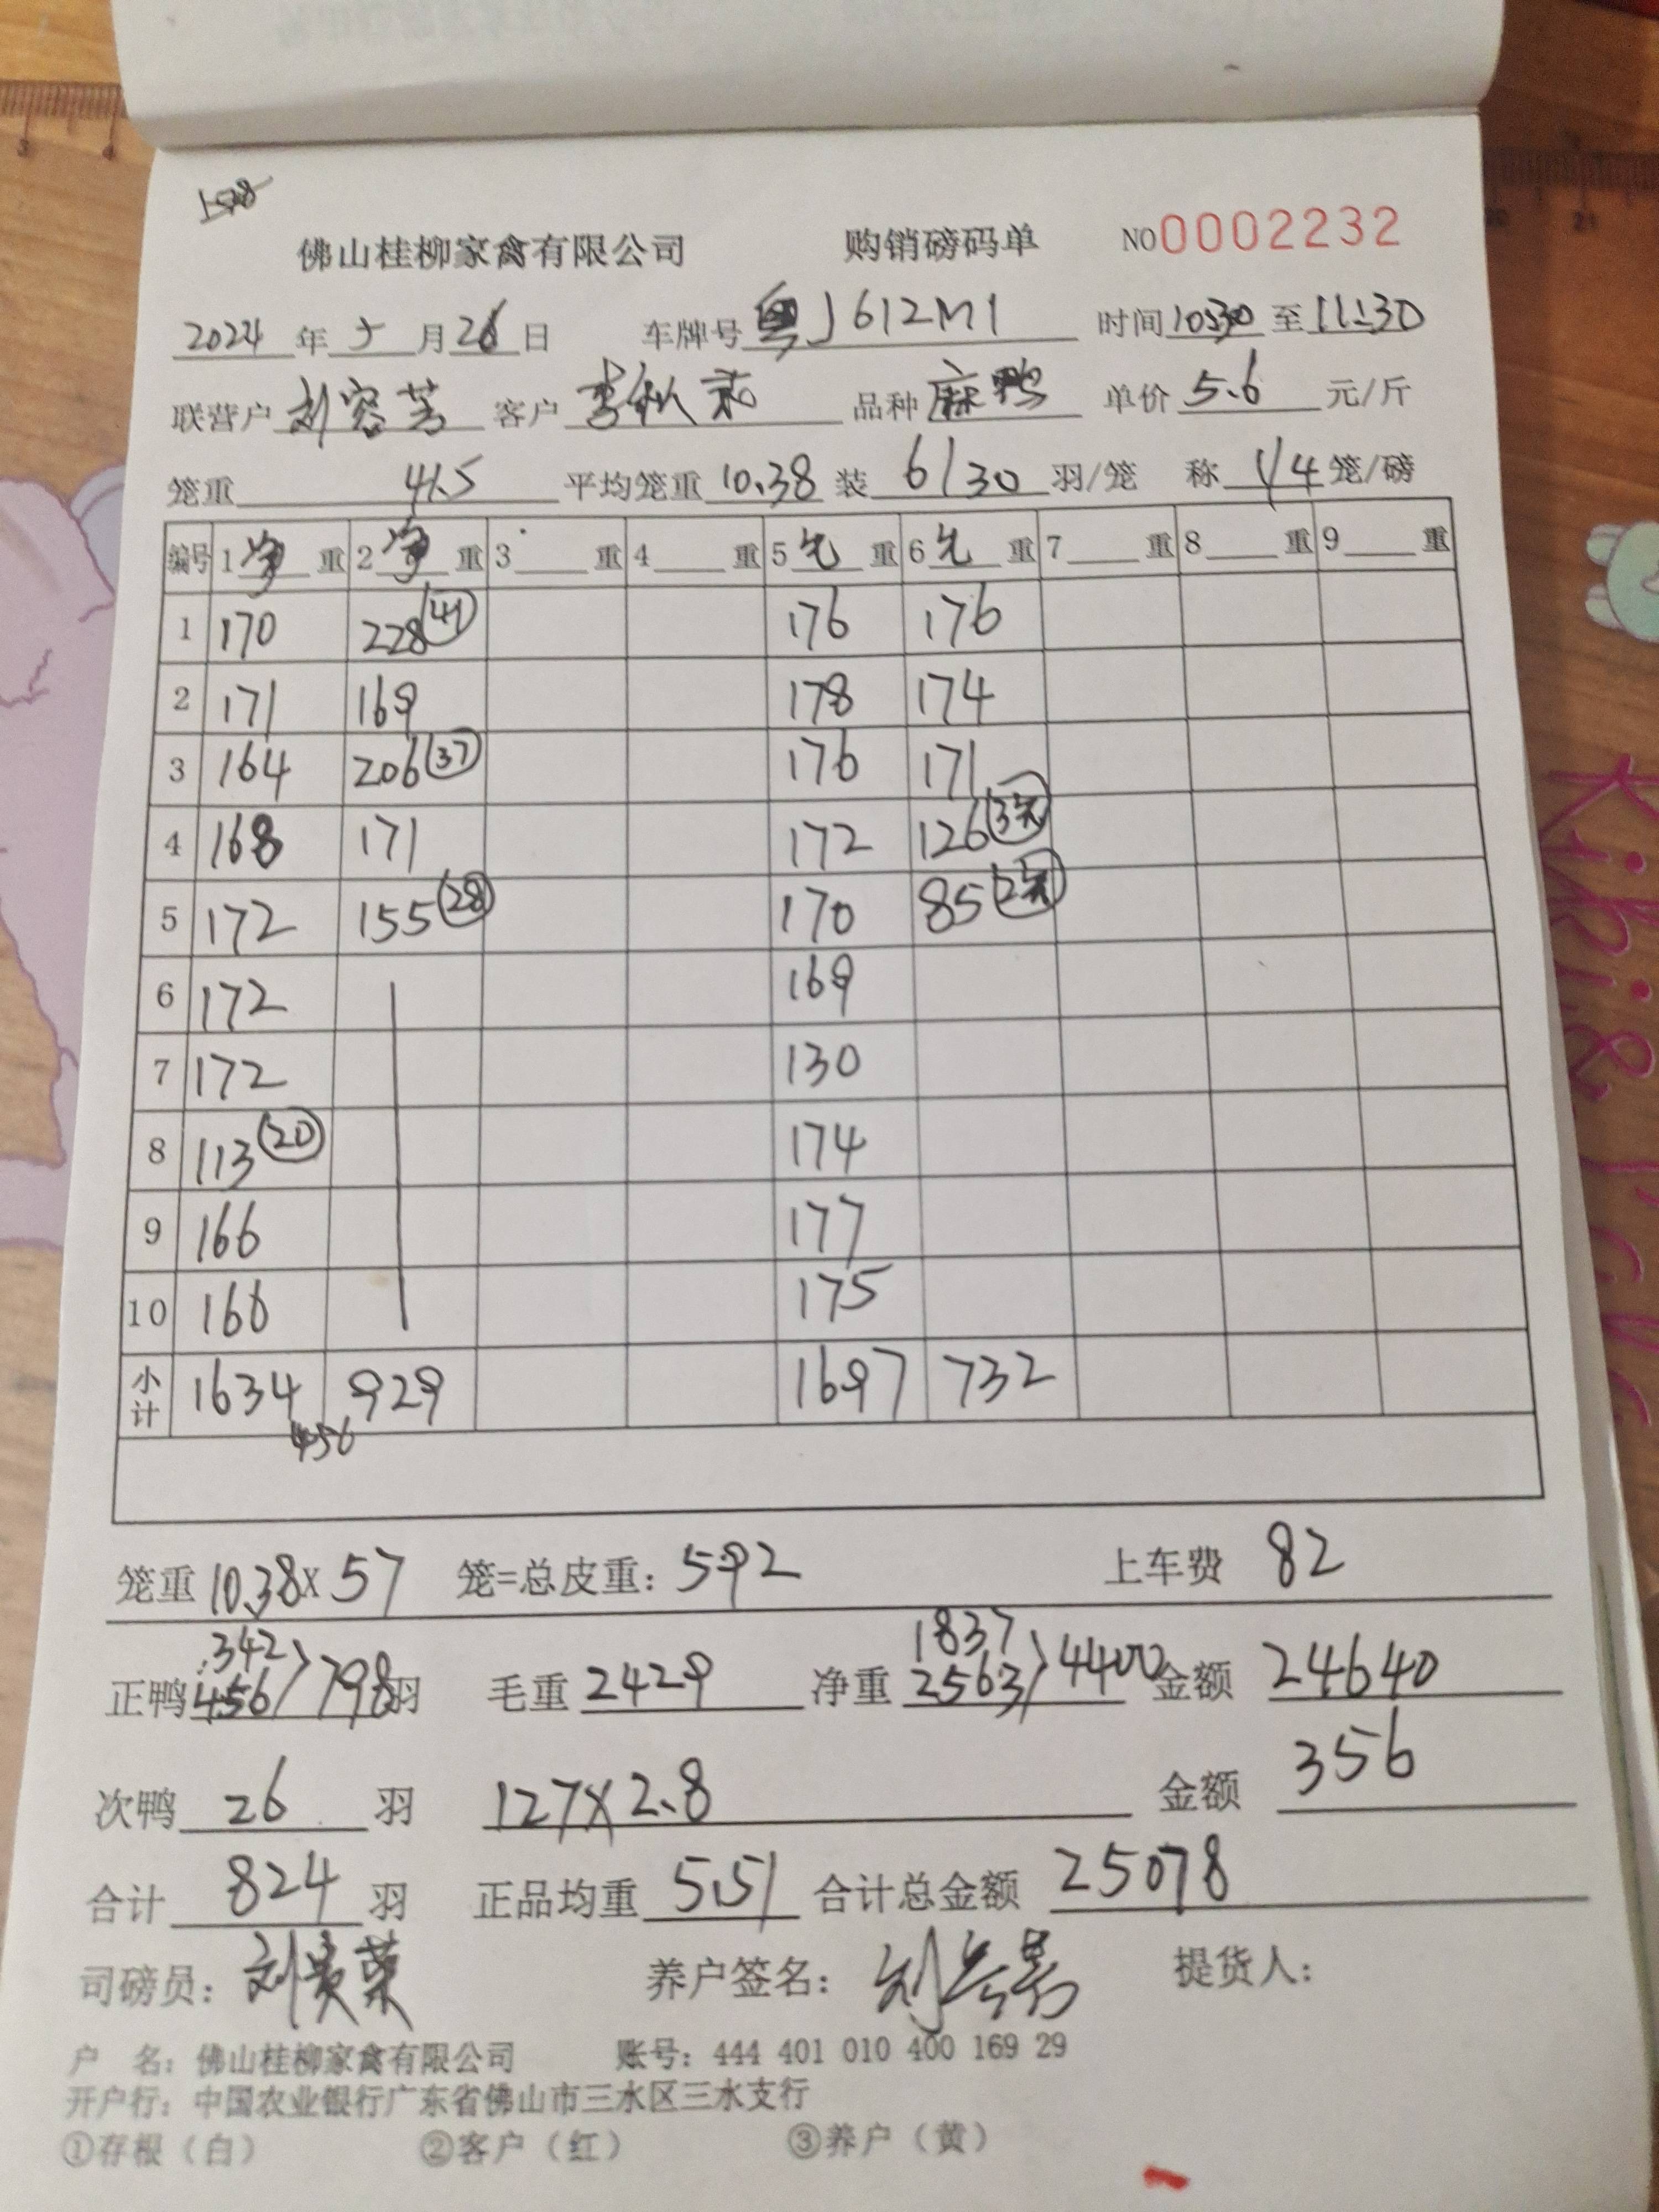 佛山桂柳家禽有限公司 购销磅码单 NO0002232
2024年5月26日 车牌号粤J612M1 时间10:30至11:30
联营户刘容芳 客户李 品种麻鸭 单价5.6元/斤
笼重41.5 平均笼重10.38装6/30羽/笼 称1/4笼/磅
编号 1净重 2净重 3重 4重 5毛重 6毛重 7重 8重 9重
1 170 228(41) 176 176
2 171 169 178 174
3 164 206(37) 176 171
4 168 171 172 126(3笼)
5 172 155(28) 170 85(2笼)
6 172 169
7 172 130
8 113(20) 174
9 166 177
10 166 175
小计 1634 929 1697 732
456
笼重10.38×57笼=总皮重:592 上车费82
342 1837
正鸭456)798羽 毛重2429 净重2563)4400 金额24640
次鸭26羽 127×2.8 金额356
合计824羽 正品均重5.51 合计总金额25078
司磅员:刘贵荣 养户签名: 提货人:
户 名:佛山桂柳家禽有限公司 账号:444 401 010 400 169 29
开户行:中国农业银行广东省佛山市三水区三水支行
①存根(白) ②客户(红) ③养户(黄)